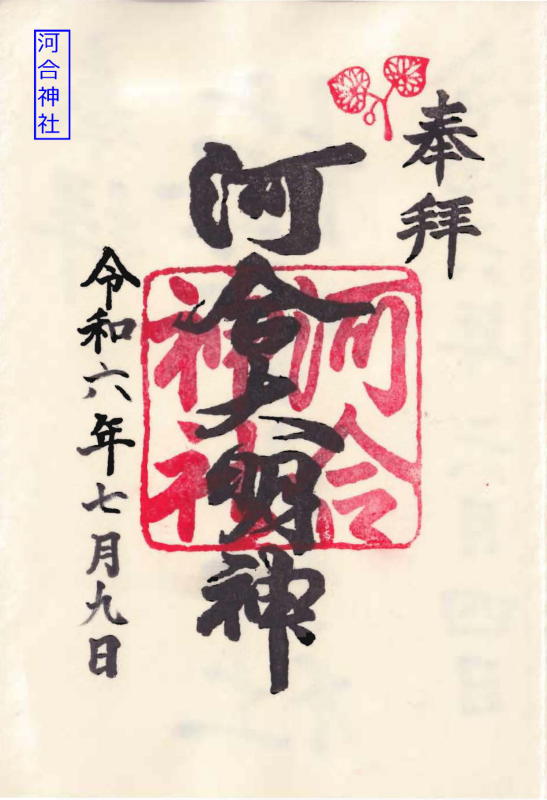 河合神社
奉拝
河合大明神
河合神社
令和六年七月九日